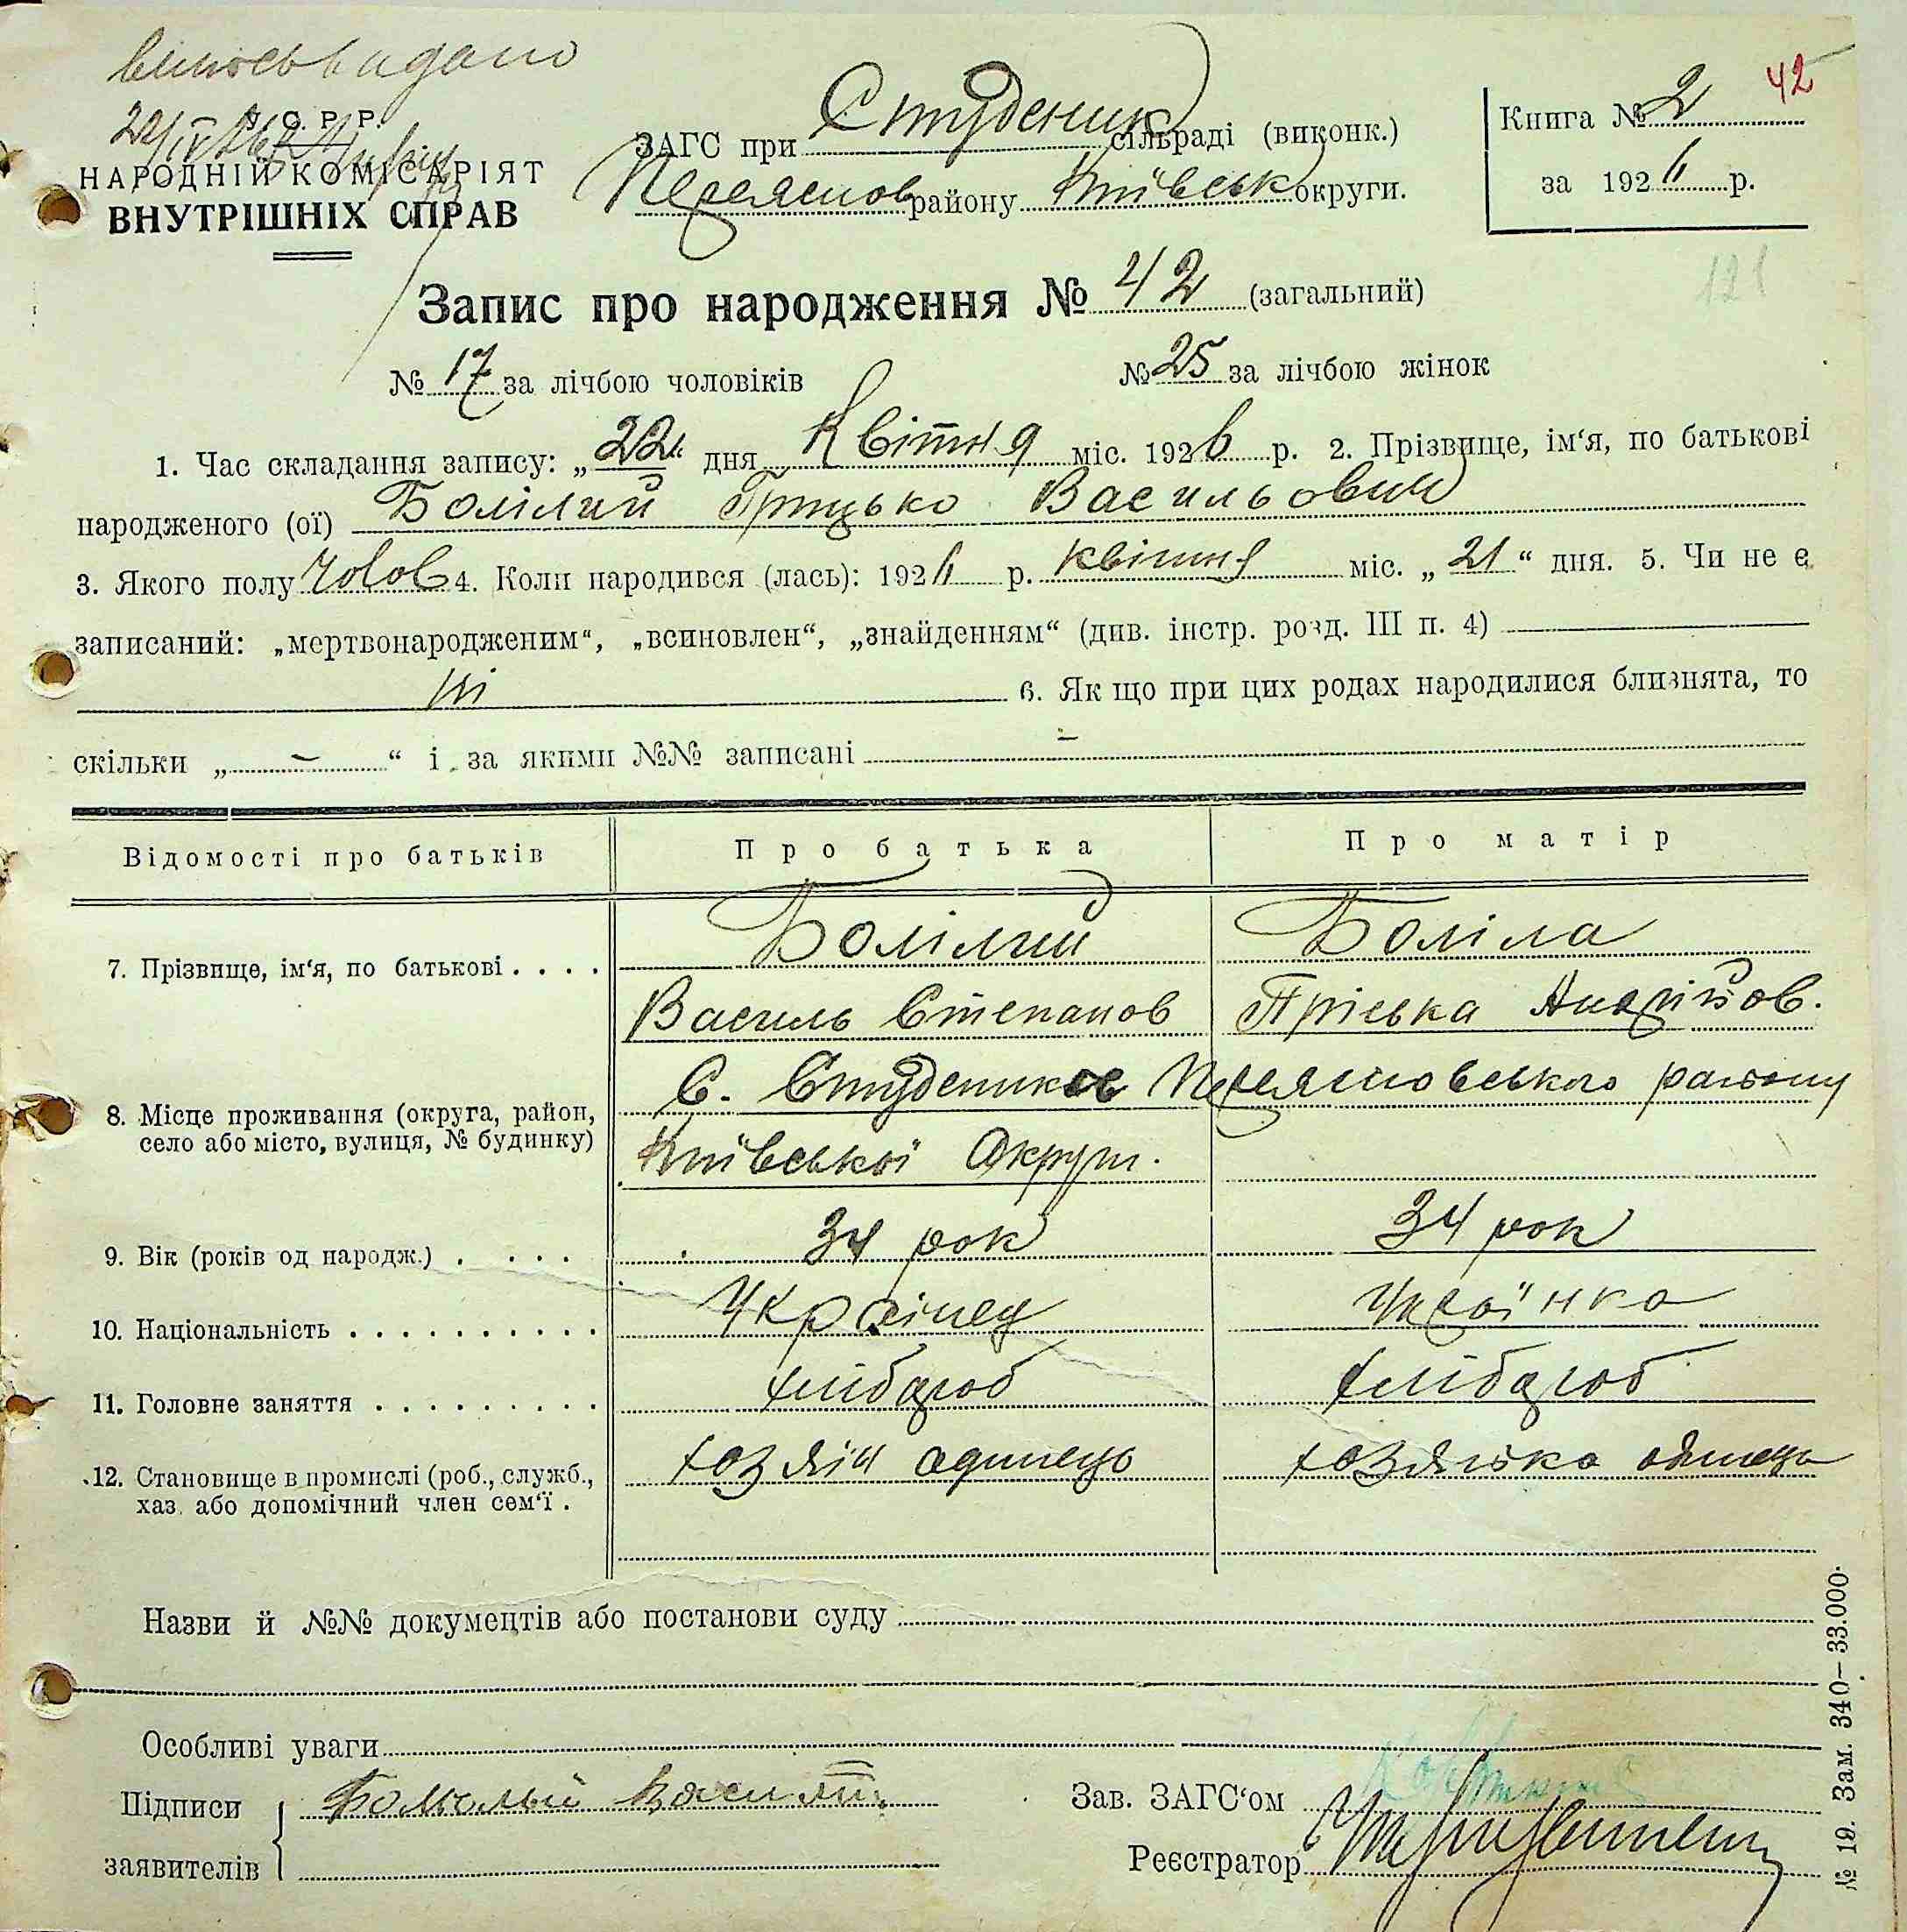 У. С. Р. Р.
НАРОДНІЙ КОМІСАРІЯТ
ВНУТРІШНІХ СПРАВ
ЗАГС при Студеник сільраді (виконк.)
Переяслов району Київськ округи.
Книга № 2
42
за 1926 р.
121
Запис про народження № 42 (загальний)
№ 17 за лічбою чоловіків № 25 за лічбою жінок
1. Час складання запису: „22" дня Квітня міс. 1926 р. 2. Прізвище, ім'я, по батькові
народженого (ої) Болілий Грицько Васильович
3. Якого полу чолов 4. Коли народився (лась): 1926 р. квітня міс. „21" дня. 5. Чи не є
записаний: „мертвонародженим", „всиновлен", „знайденням" (див. інстр. розд. III п. 4)
ні 6. Як що при цих родах народилися близнята, то
скільки „ – " і за якими №№ записані –
Відомості про батьків Про батька Про матір
7. Прізвище, ім'я, по батькові . . . . Болілий Боліла
Василь Степанов Пріська Андрійов.
8. Місце проживання (округа, район, село або місто, вулиця, № будинку) С. Студеники Переясловського району
Київської Округи.
9. Вік (років од народж.) . . . . 34 рок 34 рок
10. Національність . . . . . . . . . . Українец Українка
11. Головне заняття . . . . . . . . . хлібороб хлібороб
12. Становище в промислі (роб., служб., хаз. або допомічний член сем'ї . хозяїн одинець хозяйка одинець
Назви й №№ документів або постанови суду
Особливі уваги
Підписи
заявителів
Зав. ЗАГС'ом
Реєстратор
№ 19. Зам. 340–33.000.